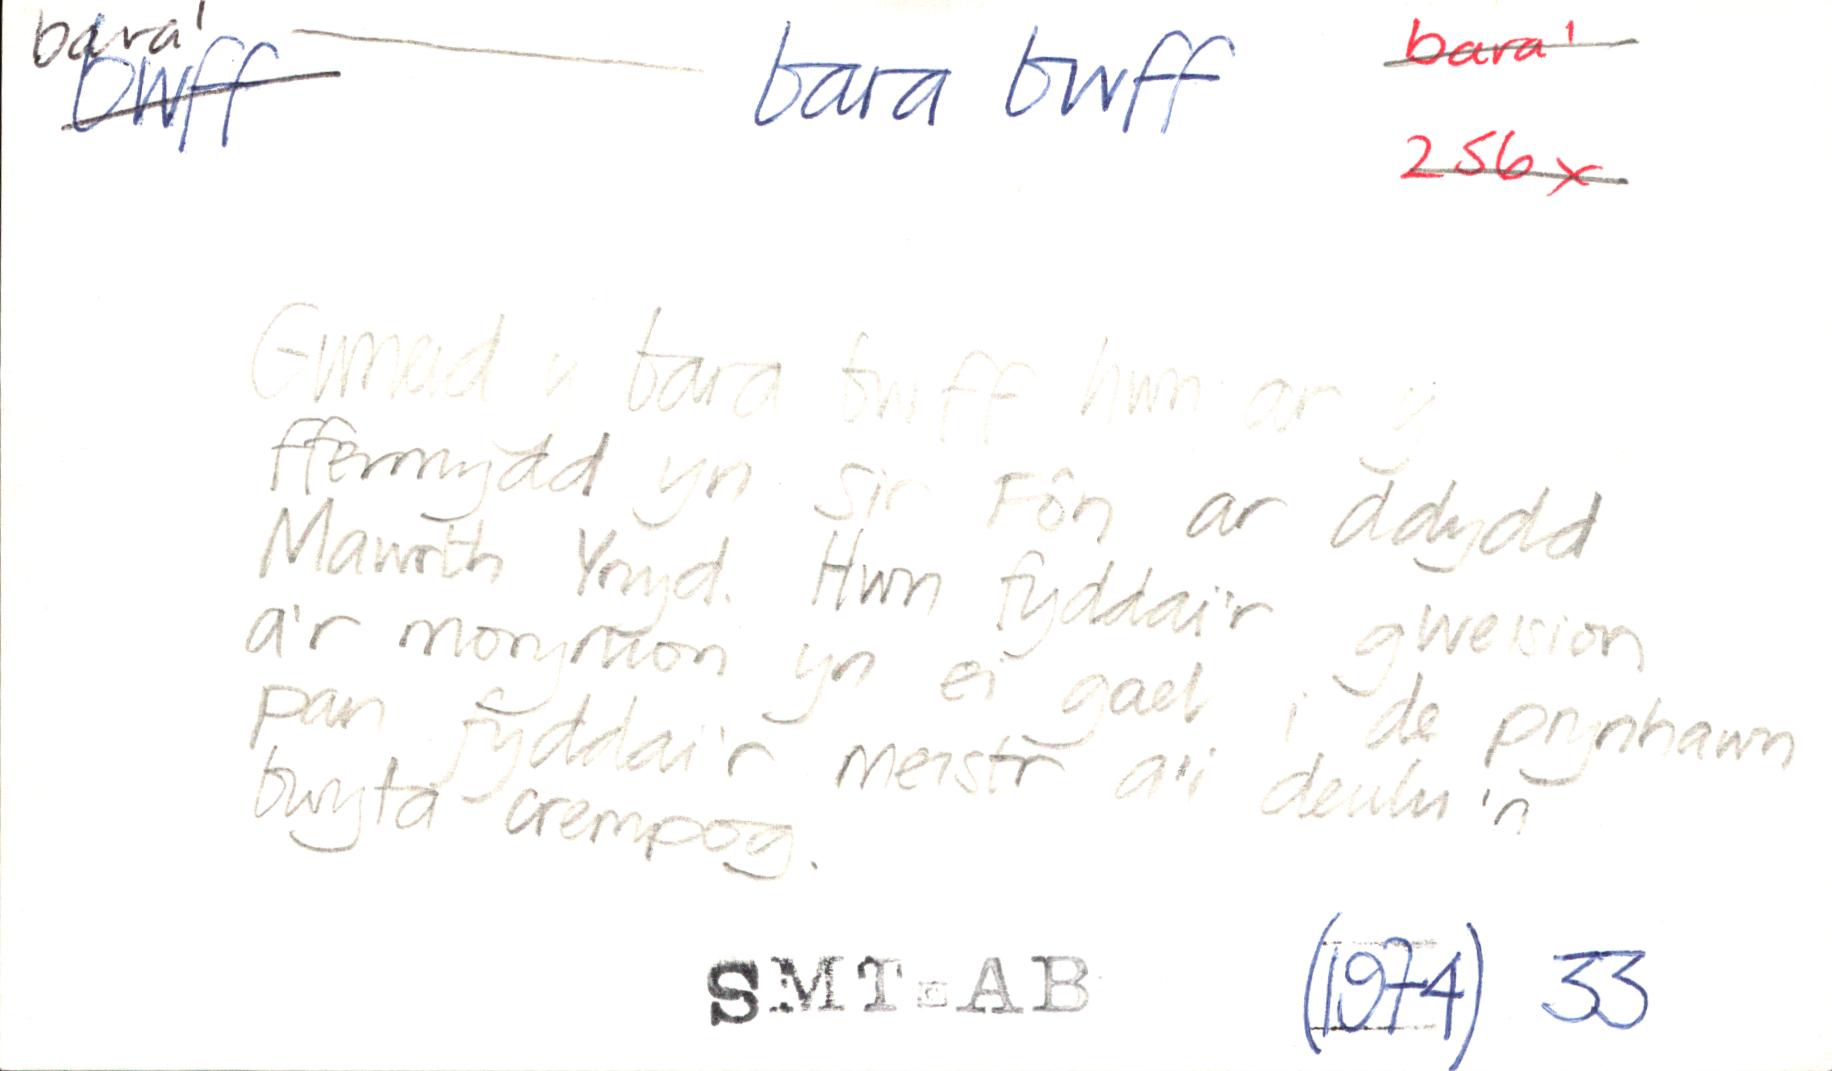 bara¹ bara bwff bara¹
bwff
256x
Gwneid y bara bwff hwn ar y
ffermydd yn Sir Fôn ar ddydd
Mawrth Ynyd. Hwn fyddai'r gweision
a'r morynion yn ei gael i de prynhawn
pan fyddai'r meistr a'i deulu'n
bwyta crempog.
SMT-AB (1974) 33